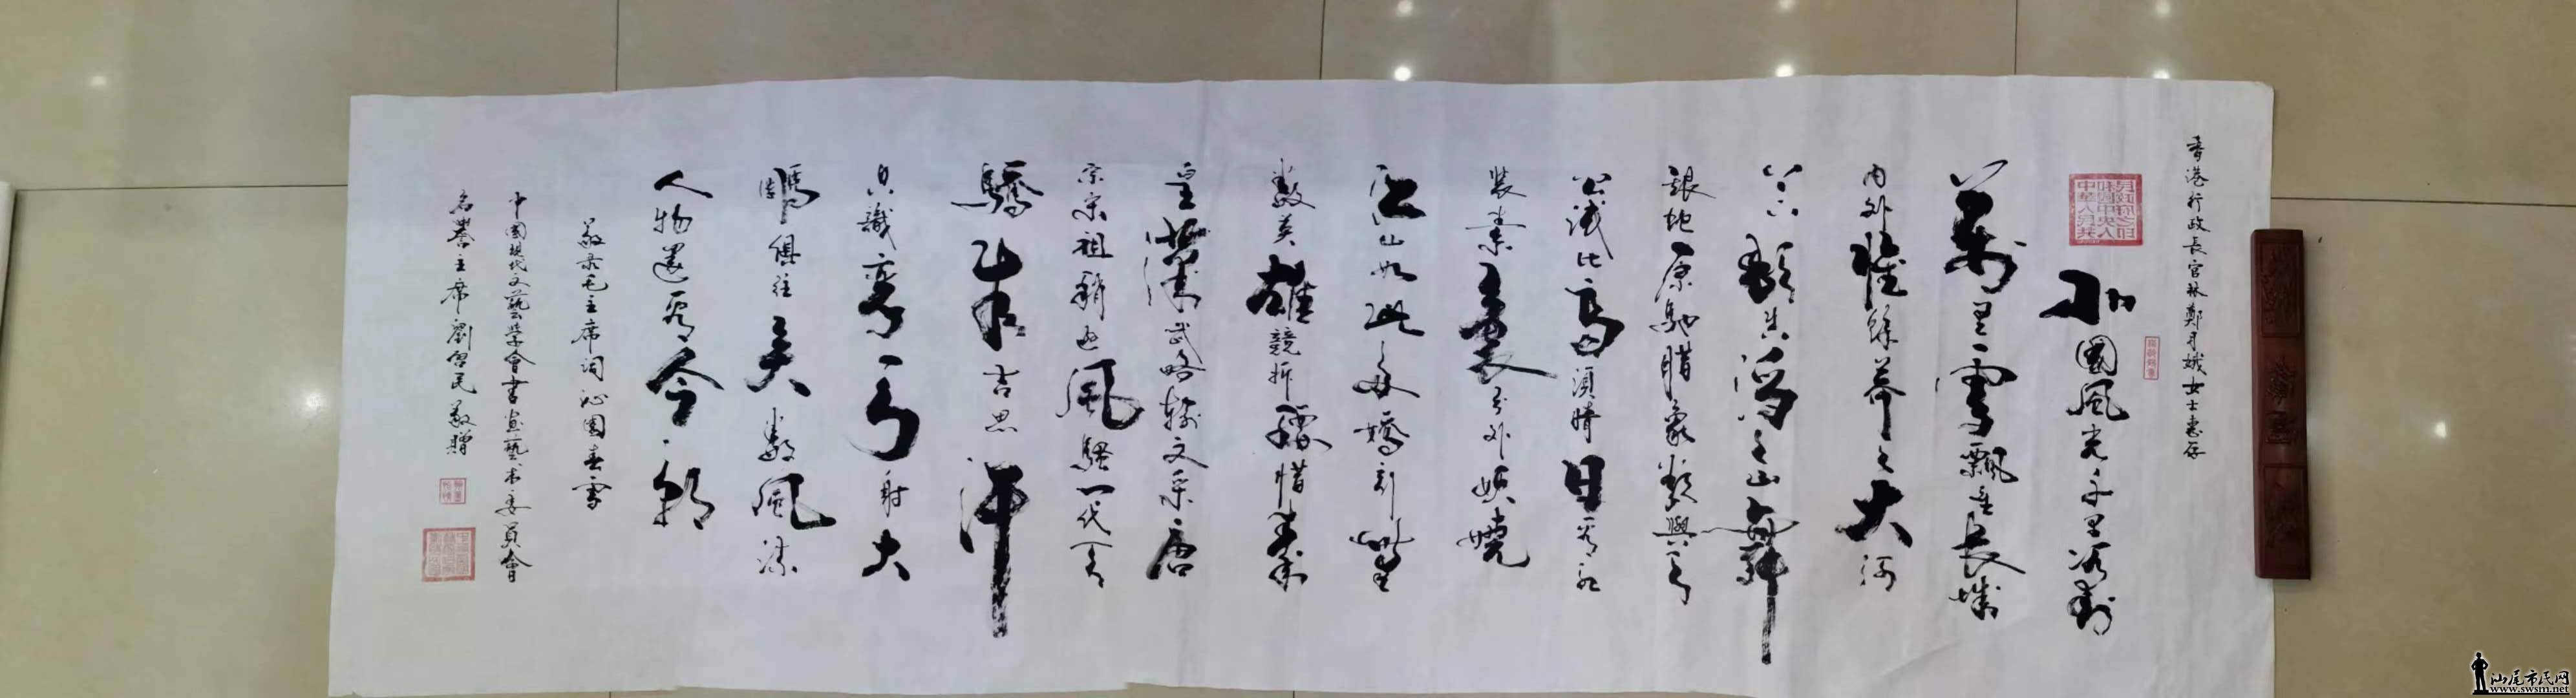 香港行政長官林鄭月娥女士惠存
北國風光千里冰封
萬里雪飄望長城
內外惟餘莽莽大河
上下頓失滔滔山舞
銀蛇原馳腊象欲與天
公試比高須晴日看紅
裝素裹分外妖嬈
江山如此多嬌引無
數英雄競折腰惜秦
皇漢武略輸文采唐
宗宋祖稍遜風騷一代天
驕成吉思汗
只識彎弓射大
鵰俱往矣數風流
人物還看今朝
敬录毛主席词沁園春雪
中國現代文藝學會書画藝术委員會
名譽主席劉啓民敬贈
汕尾市民网
www.swsm.net